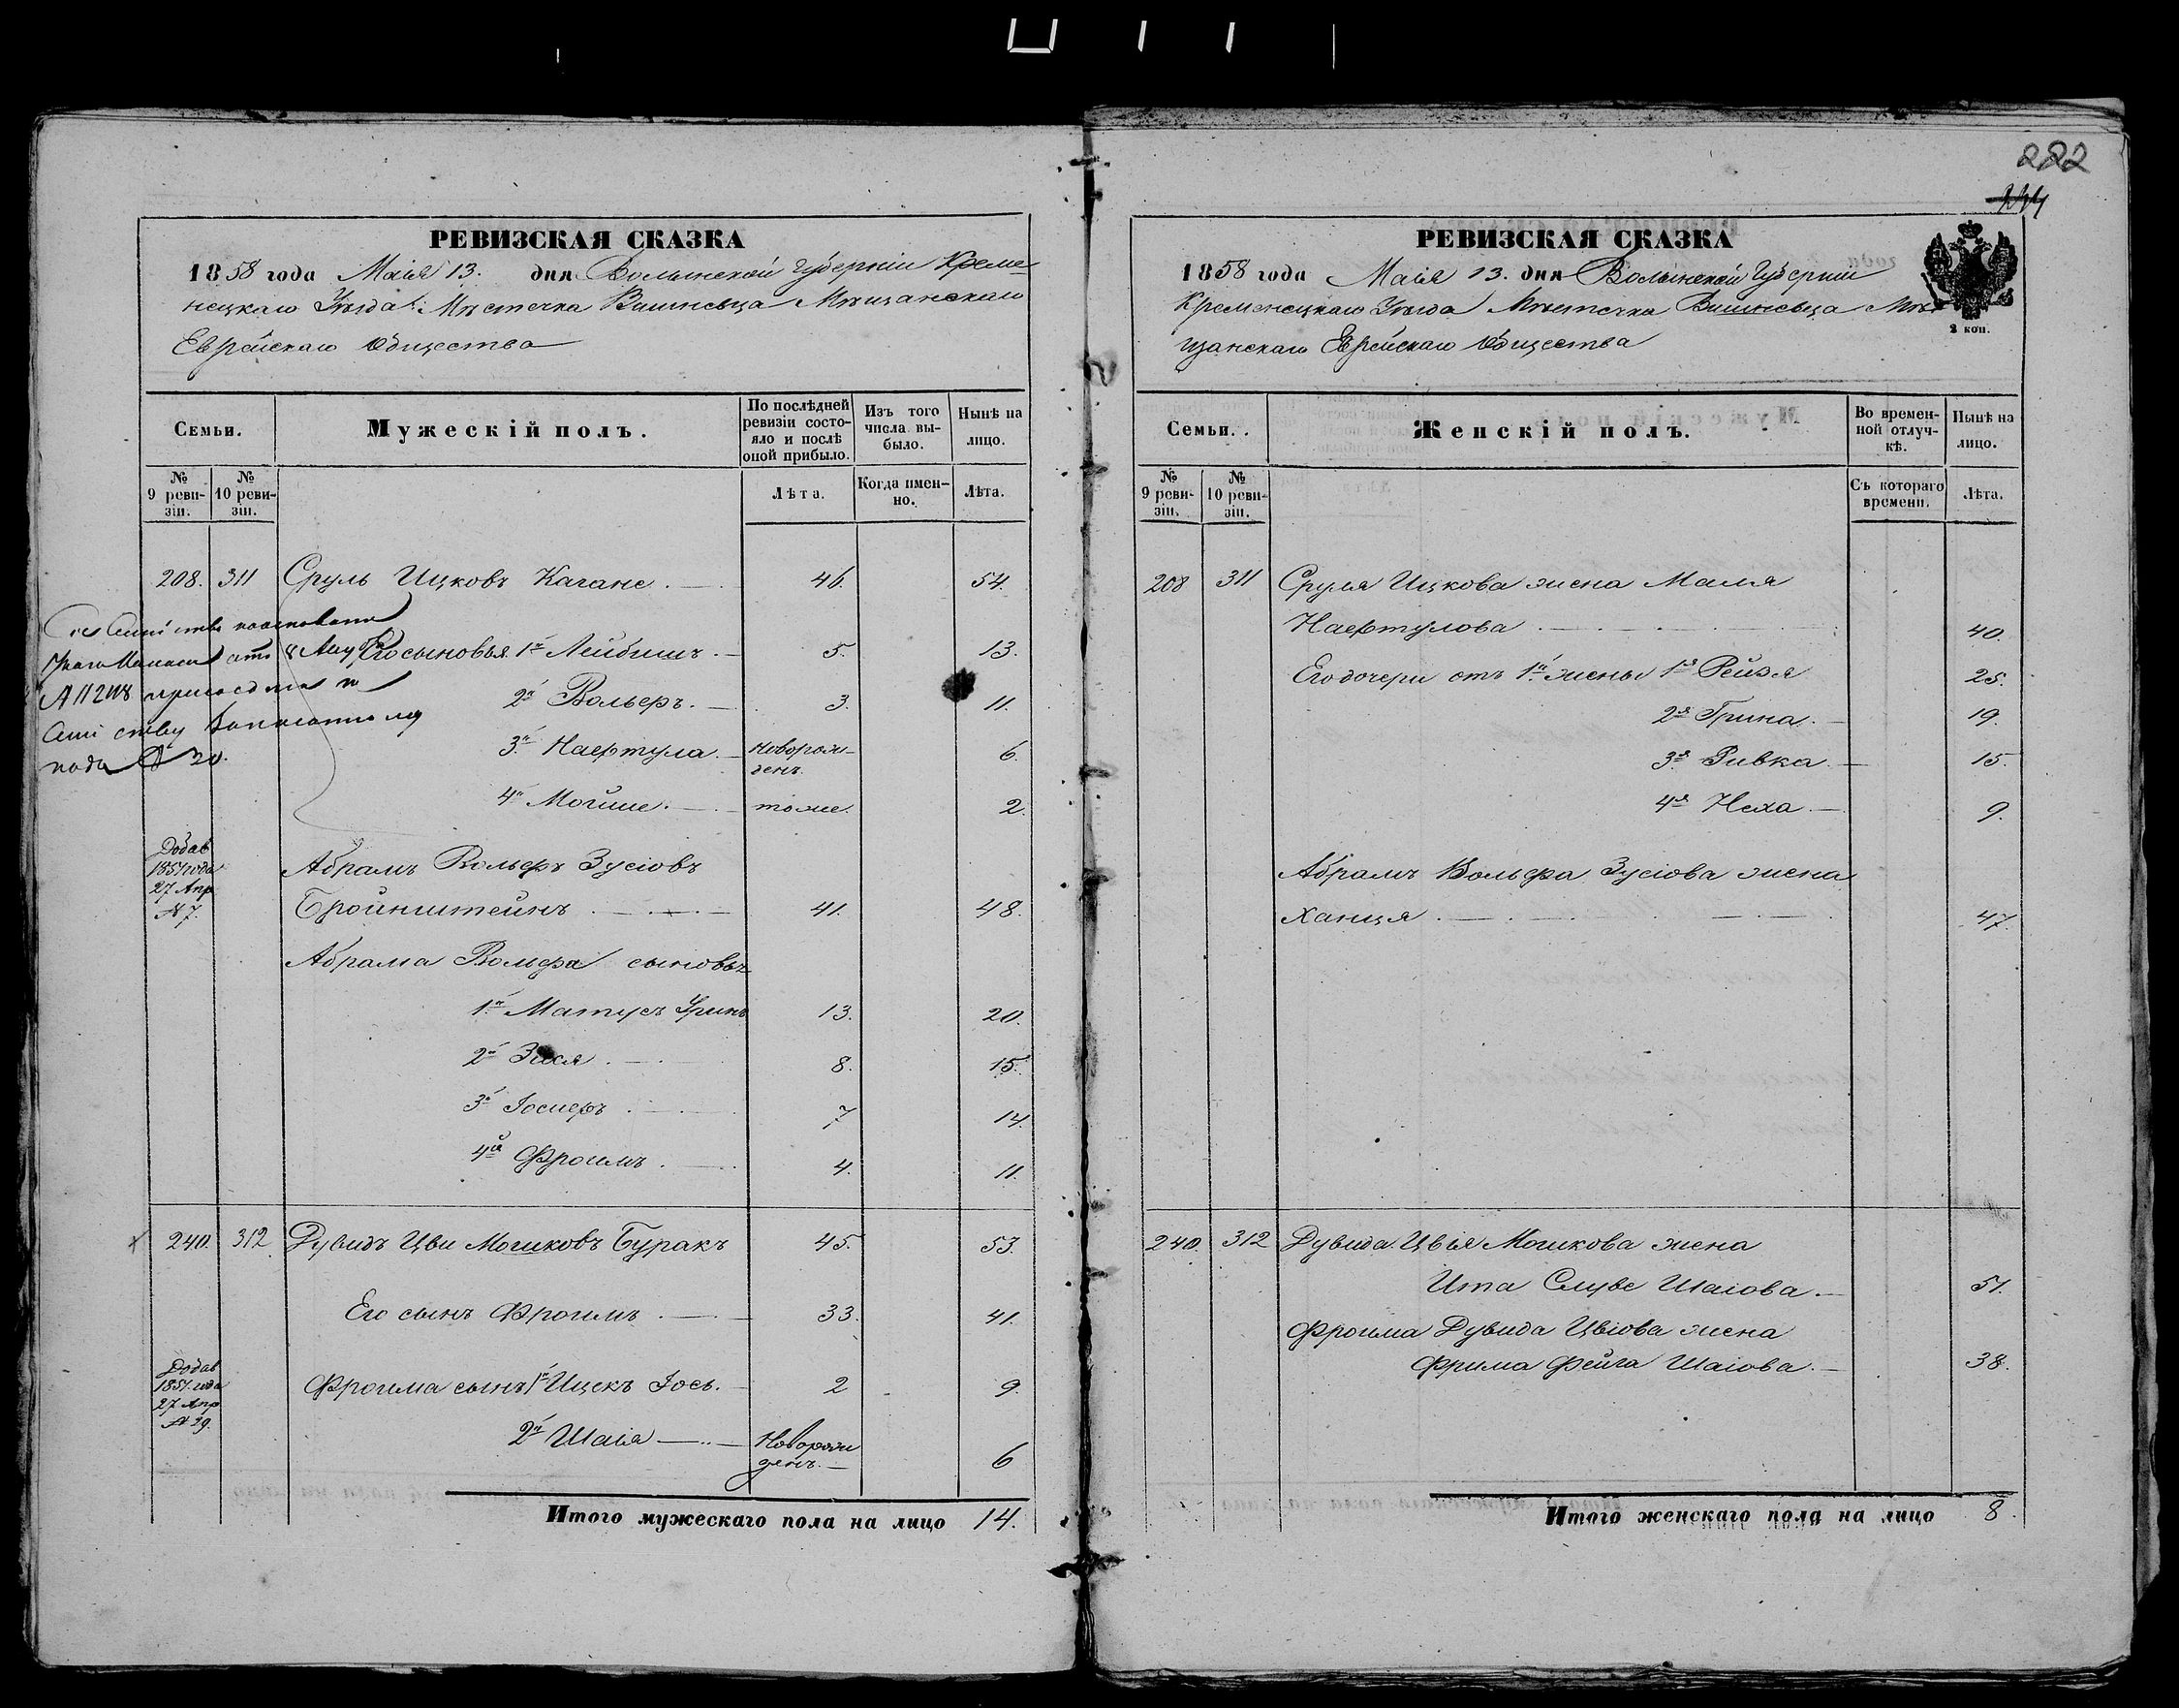 222
РЕВИЗСКАЯ СКАЗКА
1858 года Маія 13. дня Волынской Губерніи Креме-
нецкаго Уѣзда Мѣстечка Вишневца Мѣщанскаго
Еврейскаго Общества
Семьи.
Мужескій полъ.
По послѣдней ревизіи состо-яло и послѣ оной прибыло.
Изъ того числа вы-было.
Нынѣ на лицо.
№ 9 реви-зіи.
№ 10 реви-зіи.
Лѣта.
Когда имен-но.
Лѣта.
208. 311 Сруль Ицковъ Кагане. 46. 54.
Его сыновья 1й Лейбишъ. 5. 13.
2й Вольфъ. 3. 11.
3й Нафтула. новорож-денъ. 6.
4й Мойше. тоже. 2.
Додав 1851 года 27 Апр № 7.
Абрамъ Вольфъ Зусіовъ
Бройнштейнъ 41. 48.
Абрама Вольфа сыновья
1й Матусъ 13. 20.
2й Зися 8. 15.
3й Іосифъ 7 14.
4й Фроимъ 4. 11.
240. 312 Дувидъ Цви Мошковъ Буракъ 45. 53.
Его сынъ Фроимъ 33. 41.
Додав 1851 года 27 Апр № 29.
Фроима сынъ 1й Ицекъ Іось. 2 9.
2й Шаія Новорож денъ. 6
Итого мужескаго пола на лицо 14.
РЕВИЗСКАЯ СКАЗКА
1858 года Маія 13. дня Волынской Губерніи
Кременецкаго Уѣзда Мѣстечка Вишневца Мѣ-
щанскаго Еврейскаго Общества
2 коп.
Семьи.
Женскій полъ.
Во времен-ной отлуч-кѣ.
Нынѣ на лицо.
№ 9 реви-зіи.
№ 10 реви-зіи.
Съ котораго времени.
Лѣта.
208 311 Сруля Ицкова жена Маля
Нафтулова 40.
Его дочери отъ 1й жены 1я Рейзя 25.
2я Грина. 19.
3я Ривка 15.
4я Неха 9.
Абрамъ Вольфа Зусіова жена
Ханця 47.
240. 312 Дувида Цвія Мошкова жена
Ита Слуве Шаіова. 51.
Фроима Дувида Цвіова жена
Фрима Фейга Шаіова. 38.
Итого женскаго пола на лицо 8.